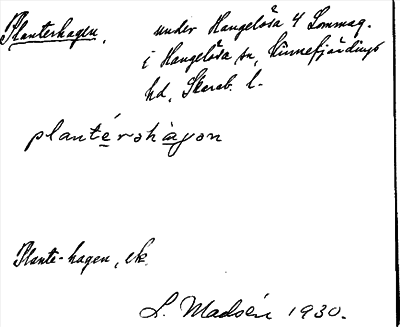 Planterhagen, under Hangelösa 4 Sommag.
i Hangelösa sn, Kinnefjärdings
hd, Skarab. l.
plantérshàgon
Plante-hagen, ek.
L. Madsén 1930.